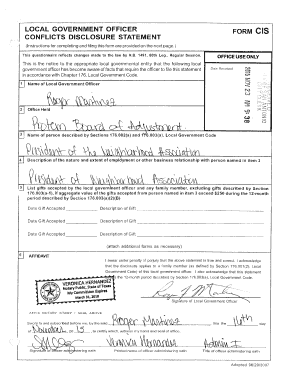 LOCAL GOVERNMENT OFFICER
CONFLICTS DISCLOSURE STATEMENT
FORM CIS
(Instructions for completing and filing this form are provided on the next page.)
This questionnaire reflects changes made to the law by H.B. 1491, 80th Leg., Regular Session.
This is the notice to the appropriate local governmental entity that the following local
government officer has become aware of facts that require the officer to file this statement
in accordance with Chapter 176, Local Government Code.
OFFICE USE ONLY
Date Received
2015 NOV 23 AM 9:38
1 Name of Local Government Officer
Roger Martinez
2 Office Held
Board of Adjustment
3 Name of person described by Sections 176.002(a) and 176.003(a), Local Government Code
President of the Neighborhood Association
4 Description of the nature and extent of employment or other business relationship with person named in item 3
President of Neighborhood Association
5 List gifts accepted by the local government officer and any family member, excluding gifts described by Section
176.003(a-1), if aggregate value of the gifts accepted from person named in item 3 exceed $250 during the 12-month
period described by Section 176.003(a)(2)(B)
Date Gift Accepted Description of Gift
Date Gift Accepted Description of Gift
Date Gift Accepted Description of Gift
(attach additional forms as necessary)
6 AFFIDAVIT
I swear under penalty of perjury that the above statement is true and correct. I acknowledge
that the disclosure applies to a family member (as defined by Section 176.001(2), Local
Government Code) of this local government officer. I also acknowledge that this statement
covers the 12-month period described by Section 176.003(a), Local Government Code.
VERONICA HERNANDEZ
Notary Public, State of Texas
My Commission Expires
Signature of Local Government Officer
AFFIX NOTARY STAMP / SEAL ABOVE
Sworn to and subscribed before me, by the said Roger Martinez this the 16th day
of November, 20 15, to certify which, witness my hand and seal of office.
Veronica Hernandez
Signature of officer administering oath Printed name of officer administering oath Title of officer administering oath
Adopted 06/29/2007